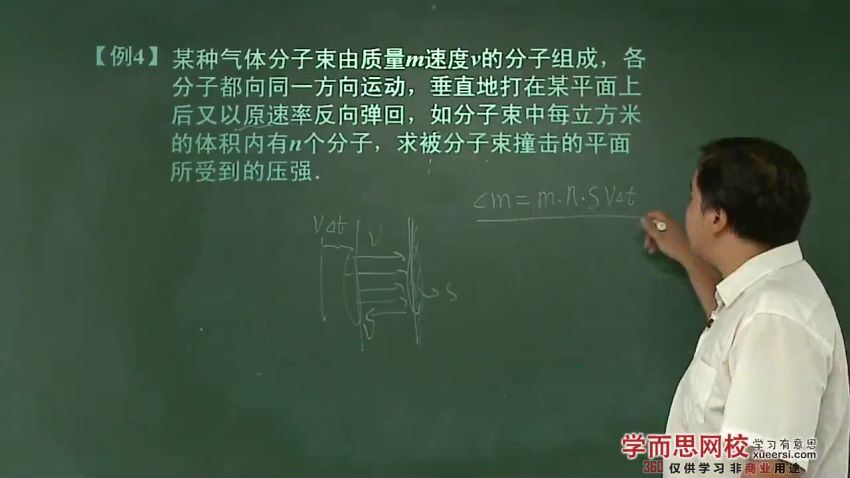 【例4】某种气体分子束由质量m速度v的分子组成，各
分子都向同一方向运动，垂直地打在某平面上
后又以原速率反向弹回，如分子束中每立方米
的体积内有n个分子，求被分子束撞击的平面
所受到的压强．
m=m·n·SV△t
V△t
v
S
学而思网校 学习有意思
xueersi.com
360 仅供学习 非商业用途